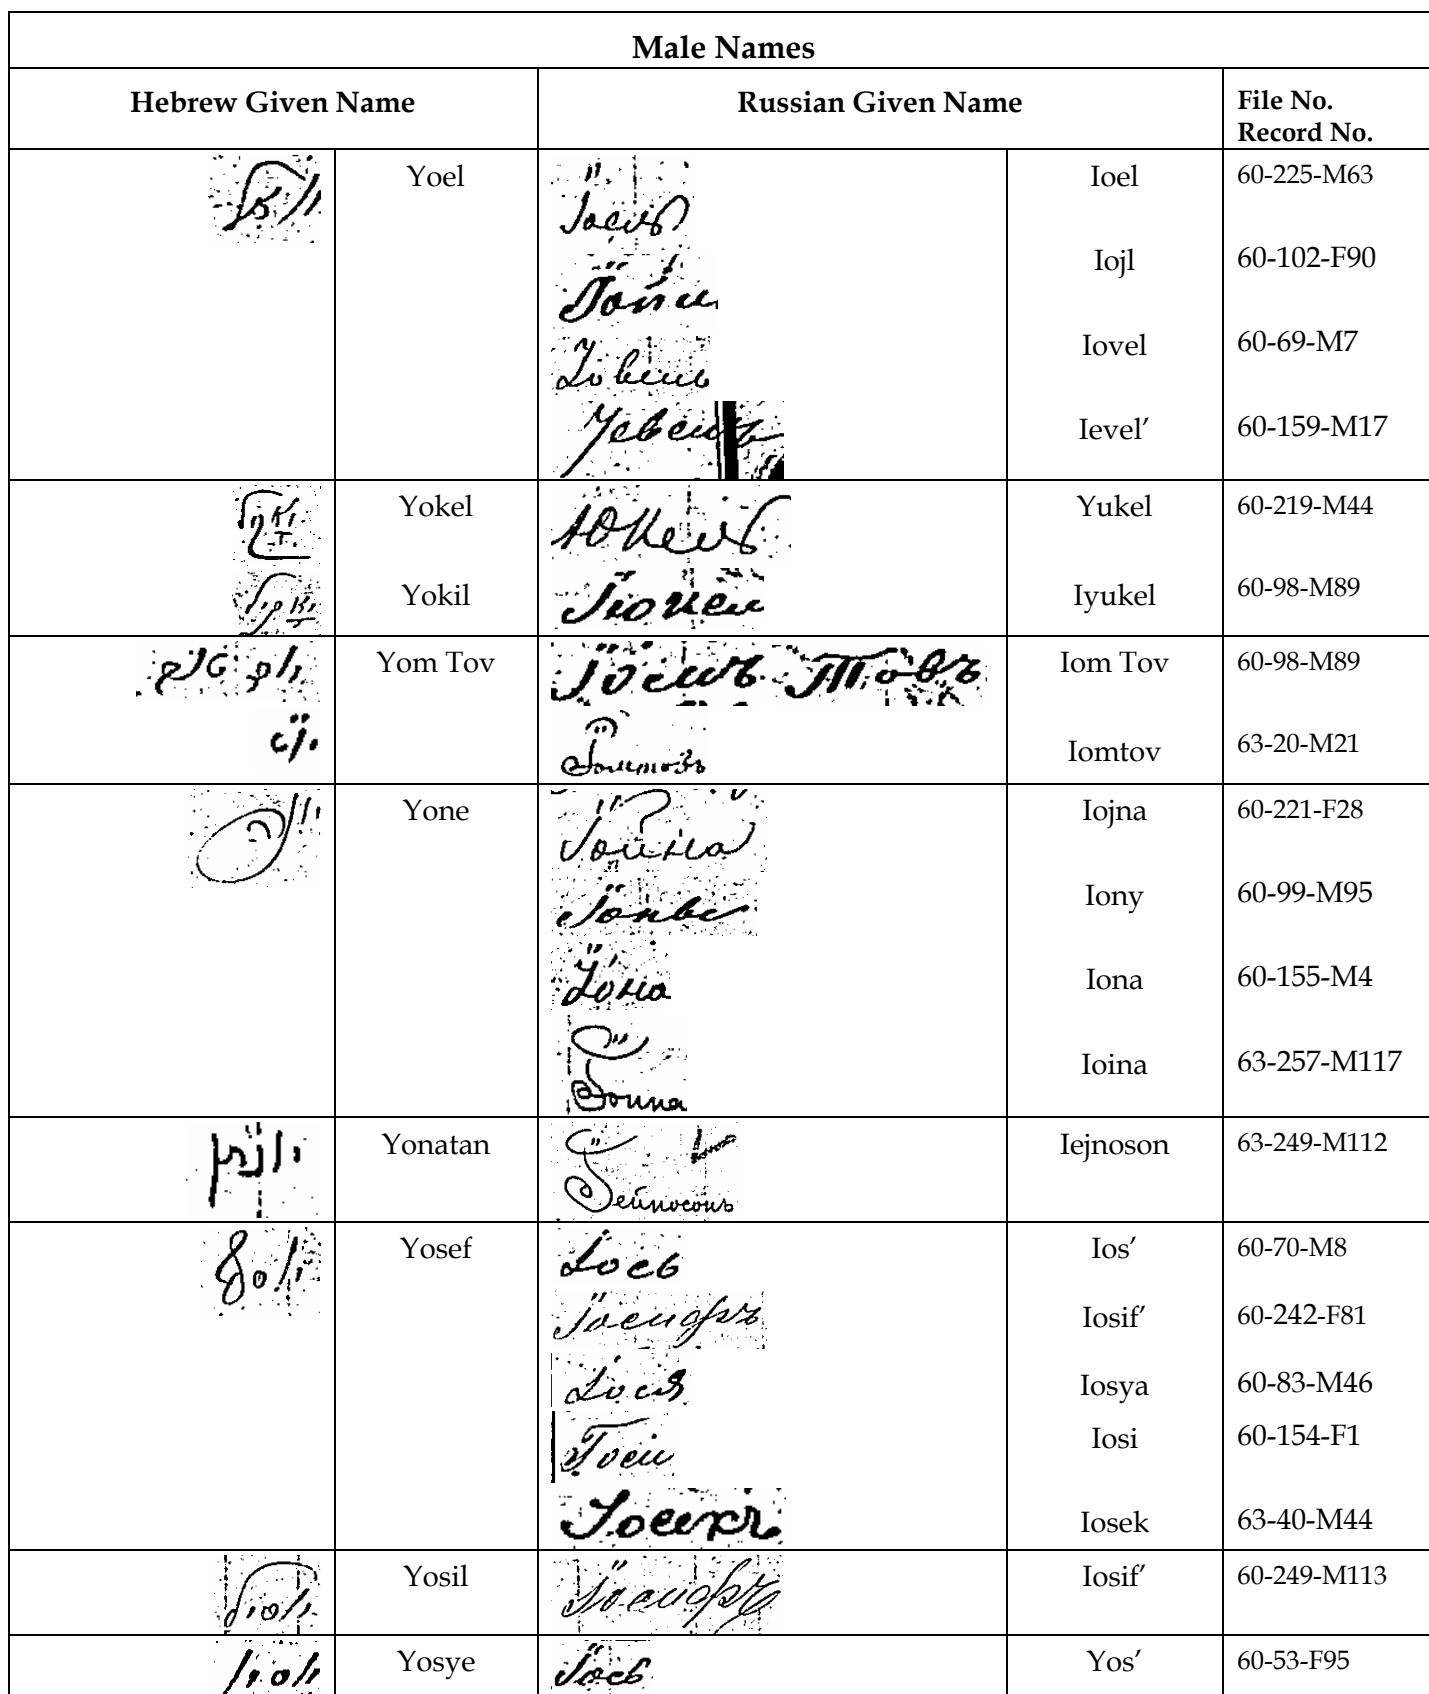 Male Names
Hebrew Given Name Russian Given Name File No.
Record No.
Yoel Ioel 60-225-M63
Iojl 60-102-F90
Iovel 60-69-M7
Ievel’ 60-159-M17
Yokel Юкель Yukel 60-219-M44
Yokil Iyukel 60-98-M89
יום טוב Yom Tov Iom Tov 60-98-M89
Iomtov 63-20-M21
יונה Yone Іойна Iojna 60-221-F28
Iony 60-99-M95
Іона Iona 60-155-M4
Іоина Ioina 63-257-M117
יונתן Yonatan Іейносонъ Iejnoson 63-249-M112
יוסף Yosef Іось Ios’ 60-70-M8
Іосифъ Iosif’ 60-242-F81
Іося Iosya 60-83-M46
Іоси Iosi 60-154-F1
Iosek 63-40-M44
Yosil Іосифъ Iosif’ 60-249-M113
Yosye Іось Yos’ 60-53-F95